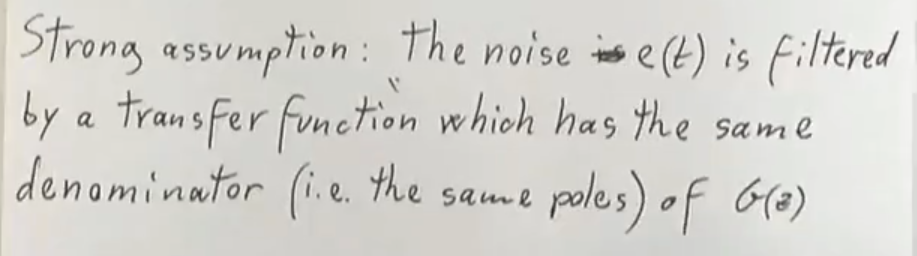 Strong assumption: the noise e(t) is filtered
by a transfer function which has the same
denominator (i.e. the same poles) of G(z)